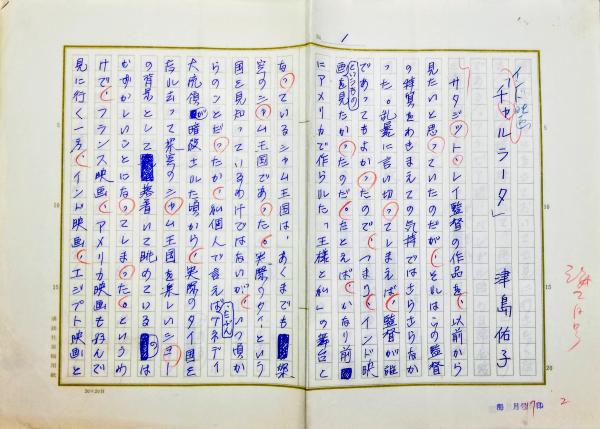 1
インド映画
「チャルラータ」
津島佑子
サタジット・レイ監督の作品を、以前から
見たいと思っていたのだが、それはこの監督
の特質をわきまえての気持ではさらさらなか
った。乱暴に言い切ってしまえば、監督が誰
であってもよかったので、つまり、インド映
画というものを見たかったのだ。たとえば、かなり前
にアメリカで作られた「王様と私」の舞台と
なっているシャム王国は、あくまでも架
空のシャム王国であった。実際のタイという
国を見知っているわけではないが、いつ頃か
らのことだったか、私個人で言えばたぶんケネディ
大統領が暗殺された頃から、実際のタイ国を
なぞって架空のシャム王国を楽しいショー
の背景として落着いて眺めているのは
むずかしいことになってしまった。というわ
けで、フランス映画、アメリカ映画も好んで
見に行く一方、インド映画、エジプト映画と
5
10
15
20
5
10
15
20
20×20行
月
印
2